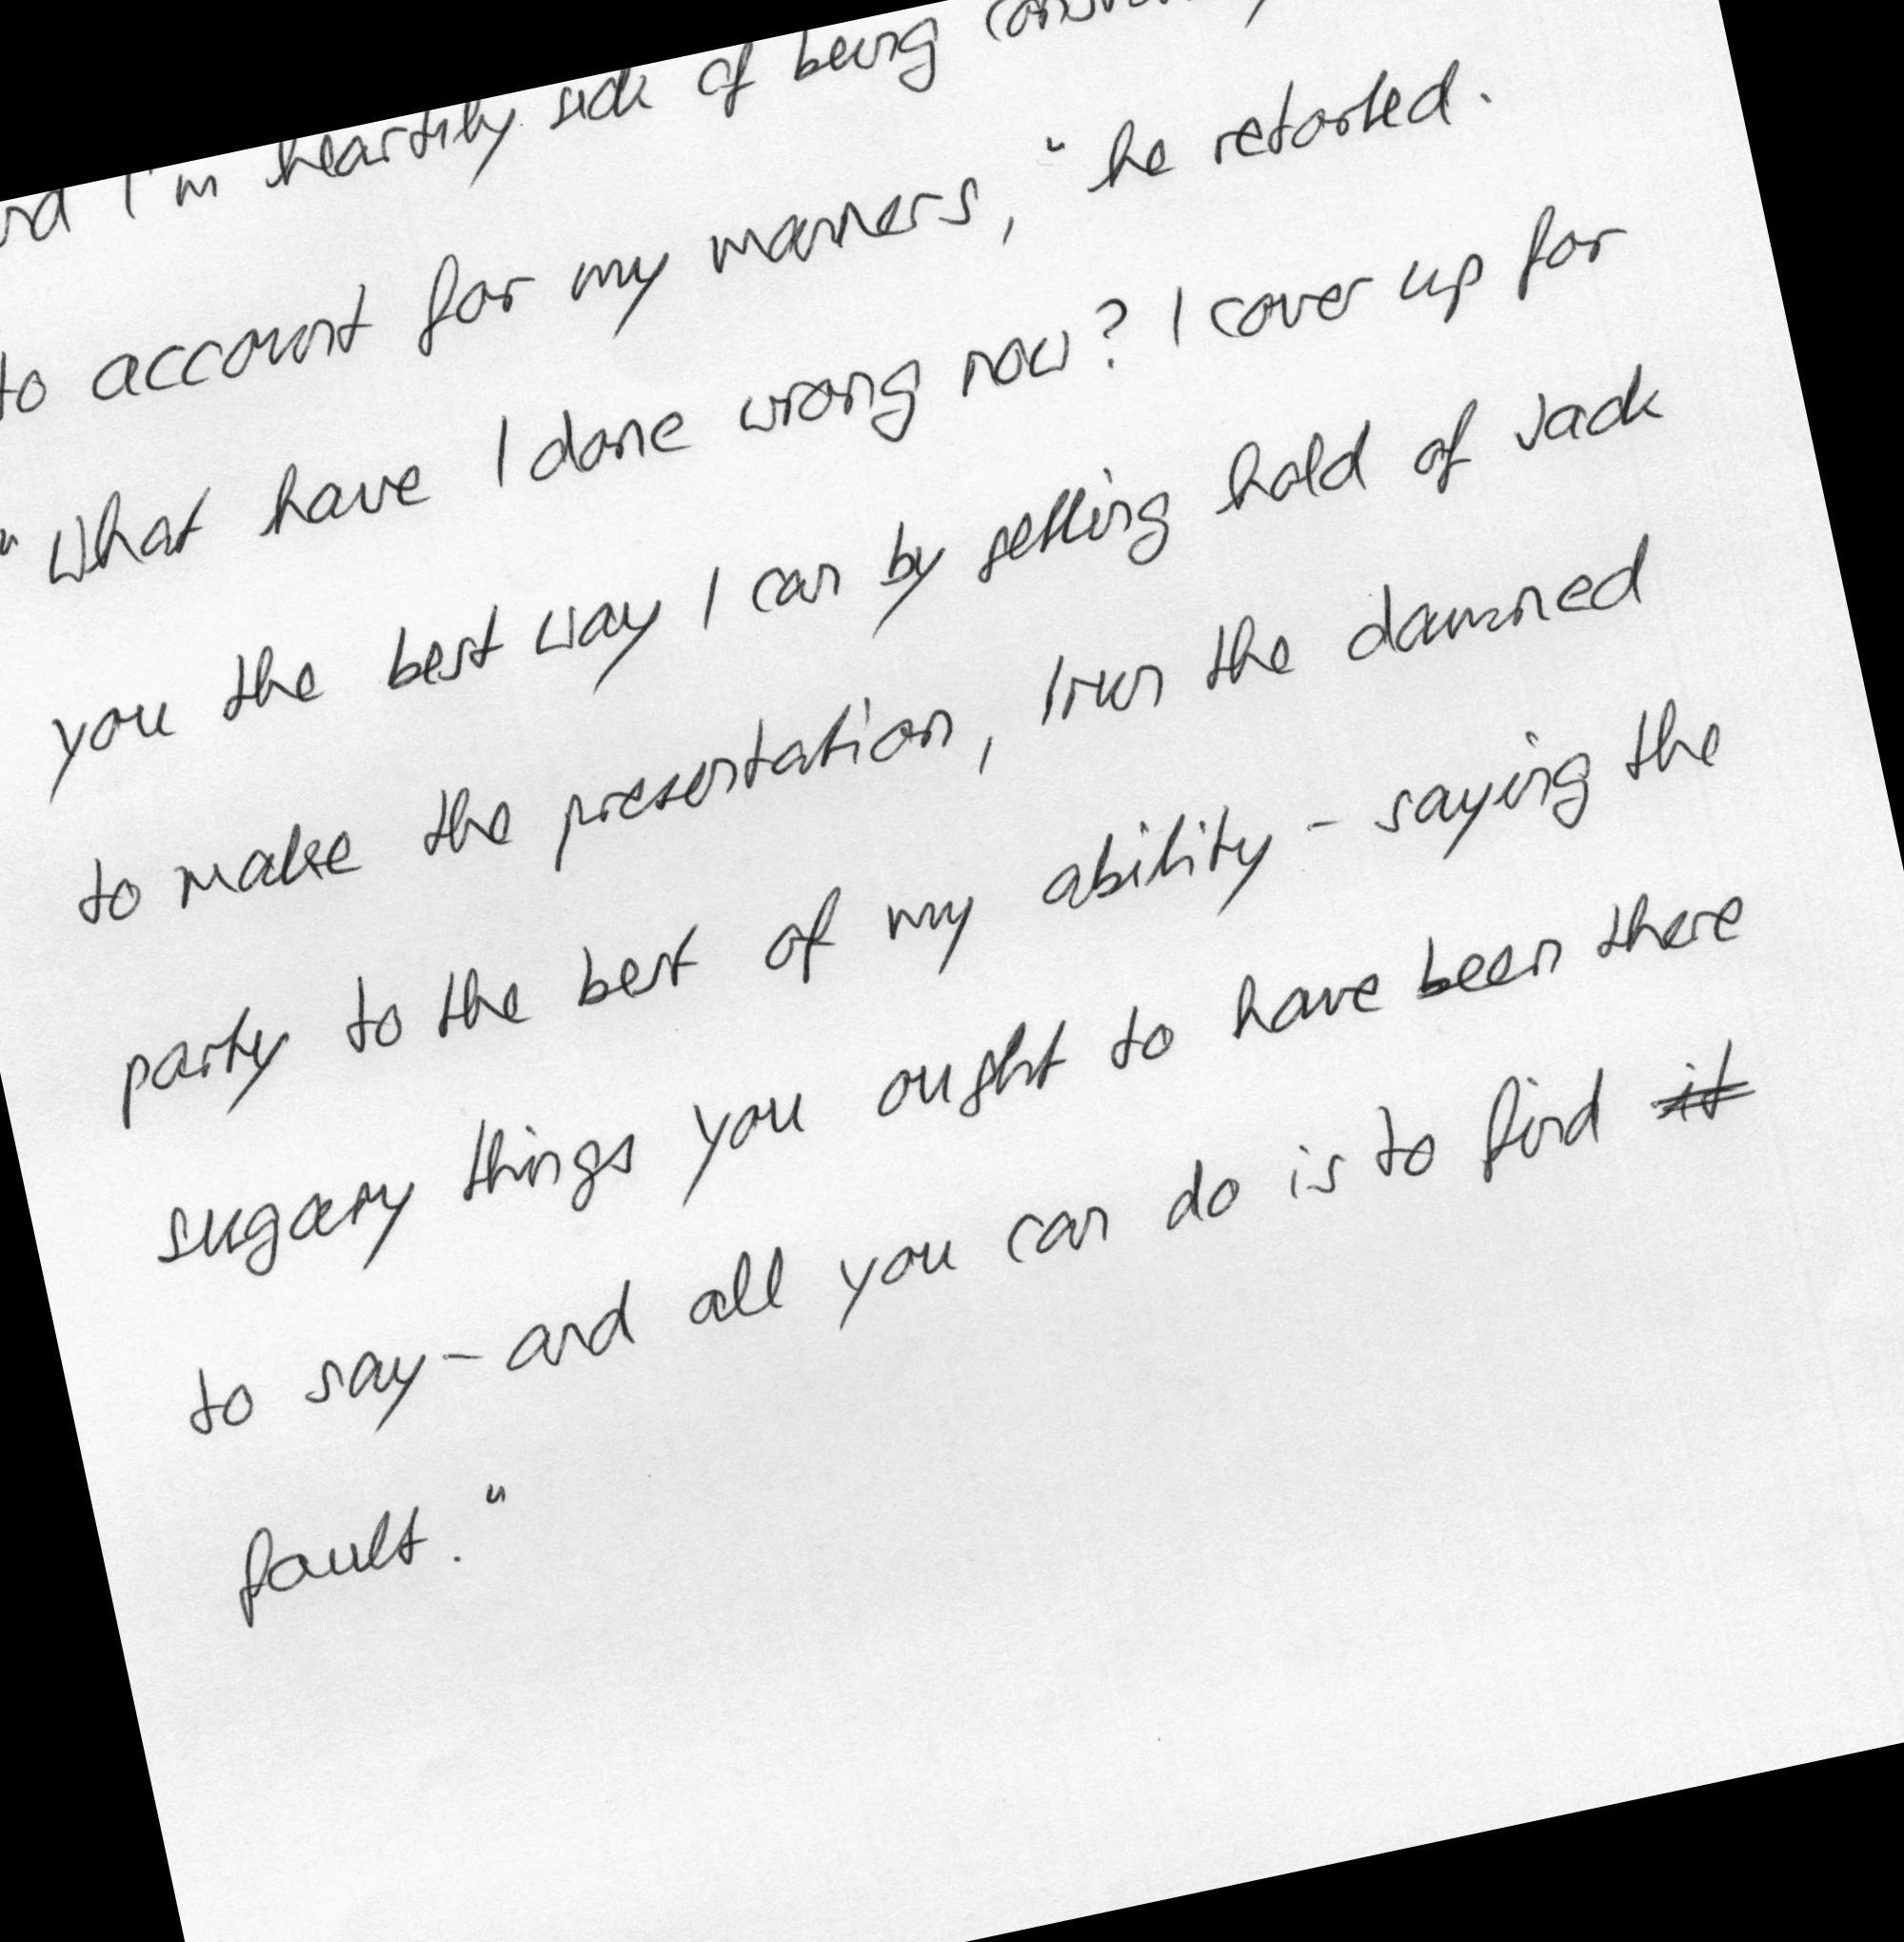 I'm heartily sick of being
to account for my manners," he retorted.
"What have I done wrong now? I cover up for
you the best way I can by getting hold of Jack
to make the presentation, I run the damned
party to the best of my ability - saying the
sugary things you ought to have been there
to say - and all you can do is to find it
fault."